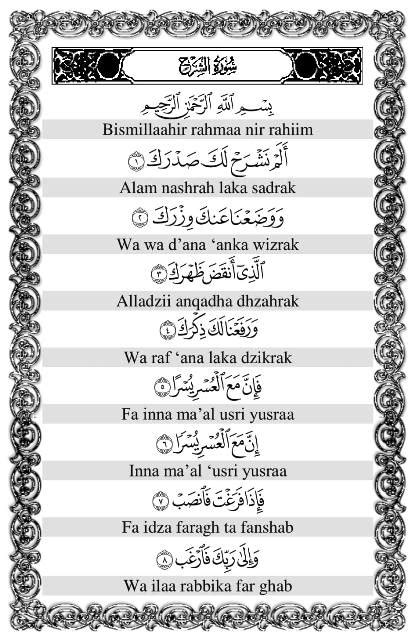 سُورَةُ الشَّرْحِ
بِسْمِ اللَّهِ الرَّحْمَٰنِ الرَّحِيمِ
Bismillaahir rahmaa nir rahiim
أَلَمْ نَشْرَحْ لَكَ صَدْرَكَ ١
Alam nashrah laka sadrak
وَوَضَعْنَا عَنكَ وِزْرَكَ ٢
Wa wa d’ana ‘anka wizrak
الَّذِي أَنقَضَ ظَهْرَكَ ٣
Alladzii anqadha dhzahrak
وَرَفَعْنَا لَكَ ذِكْرَكَ ٤
Wa raf ‘ana laka dzikrak
فَإِنَّ مَعَ الْعُسْرِ يُسْرًا ٥
Fa inna ma’al usri yusraa
إِنَّ مَعَ الْعُسْرِ يُسْرًا ٦
Inna ma’al ‘usri yusraa
فَإِذَا فَرَغْتَ فَانصَبْ ٧
Fa idza faragh ta fanshab
وَإِلَىٰ رَبِّكَ فَارْغَب ٨
Wa ilaa rabbika far ghab